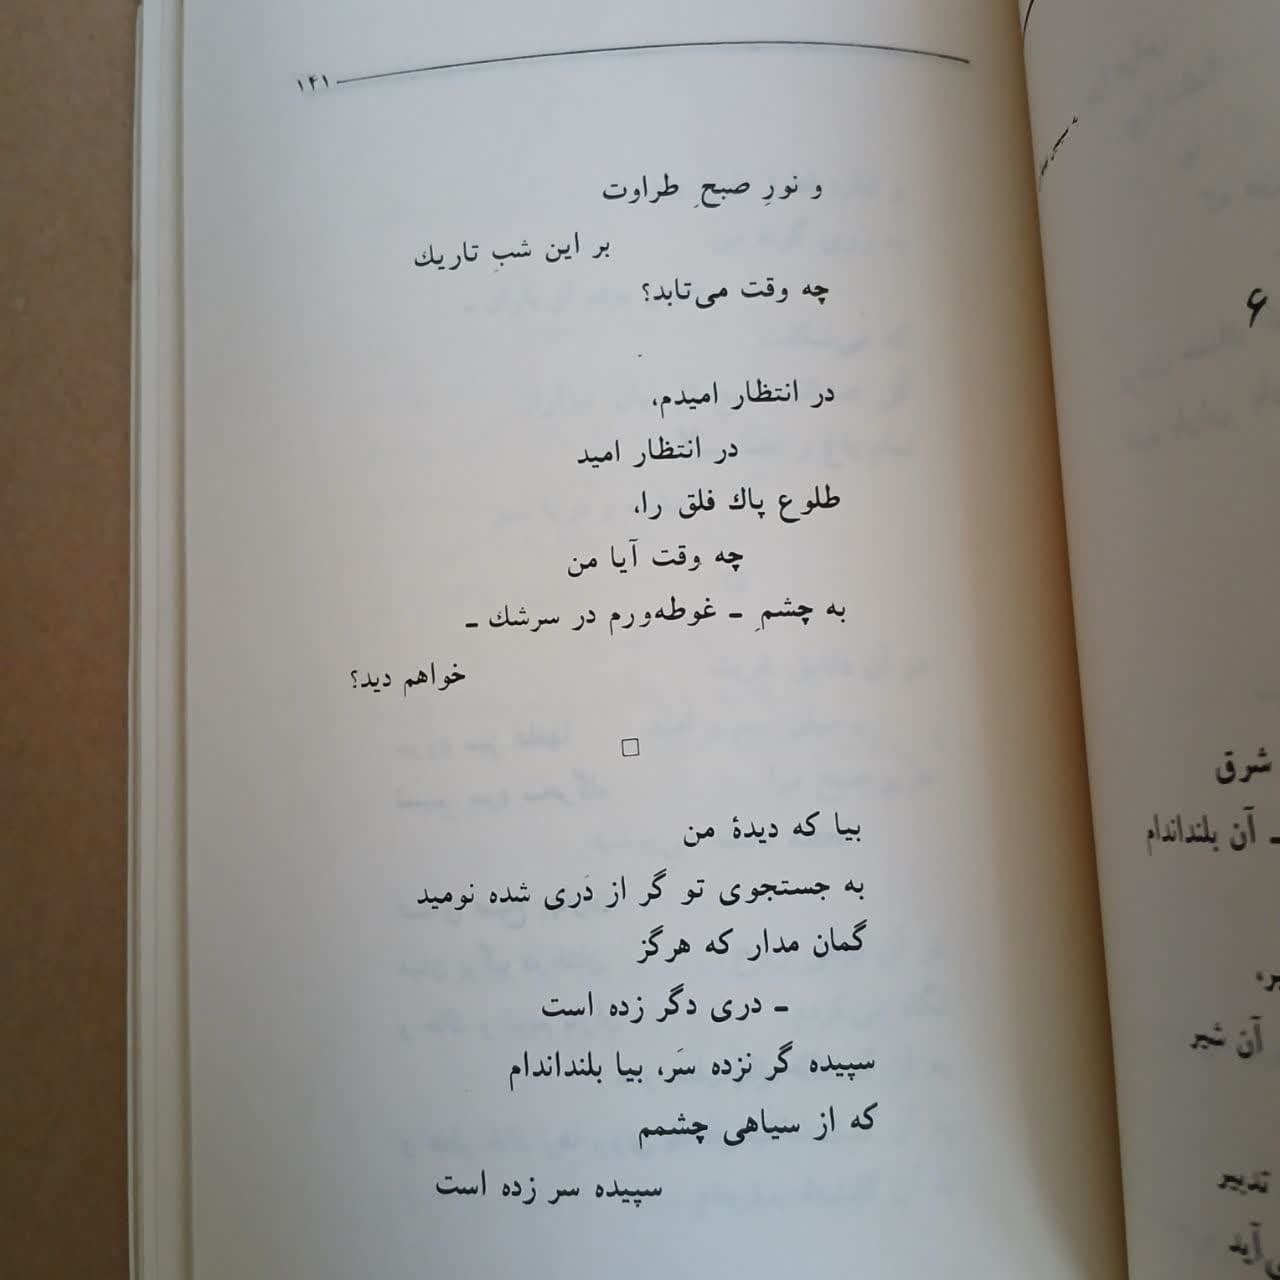 ۱۴۱
و نورِ صبحِ طراوت
بر این شبِ تاریك
چه وقت می‌تابد؟
در انتظار امیدم،
در انتظار امید
طلوع پاك فلق را،
چه وقت آیا من
به چشمِ ـ غوطه‌ورم در سرشك ـ
خواهم دید؟
بیا که دیدهٔ من
به جستجوی تو گر از دَری شده نومید
گمان مدار که هرگز
ـ دری دگر زده است
سپیده گر نزده سَر، بیا بلنداندام
که از سیاهی چشمم
سپیده سر زده است
۶
شرق
ـ آن بلنداندام
آن شیر
تدبیر